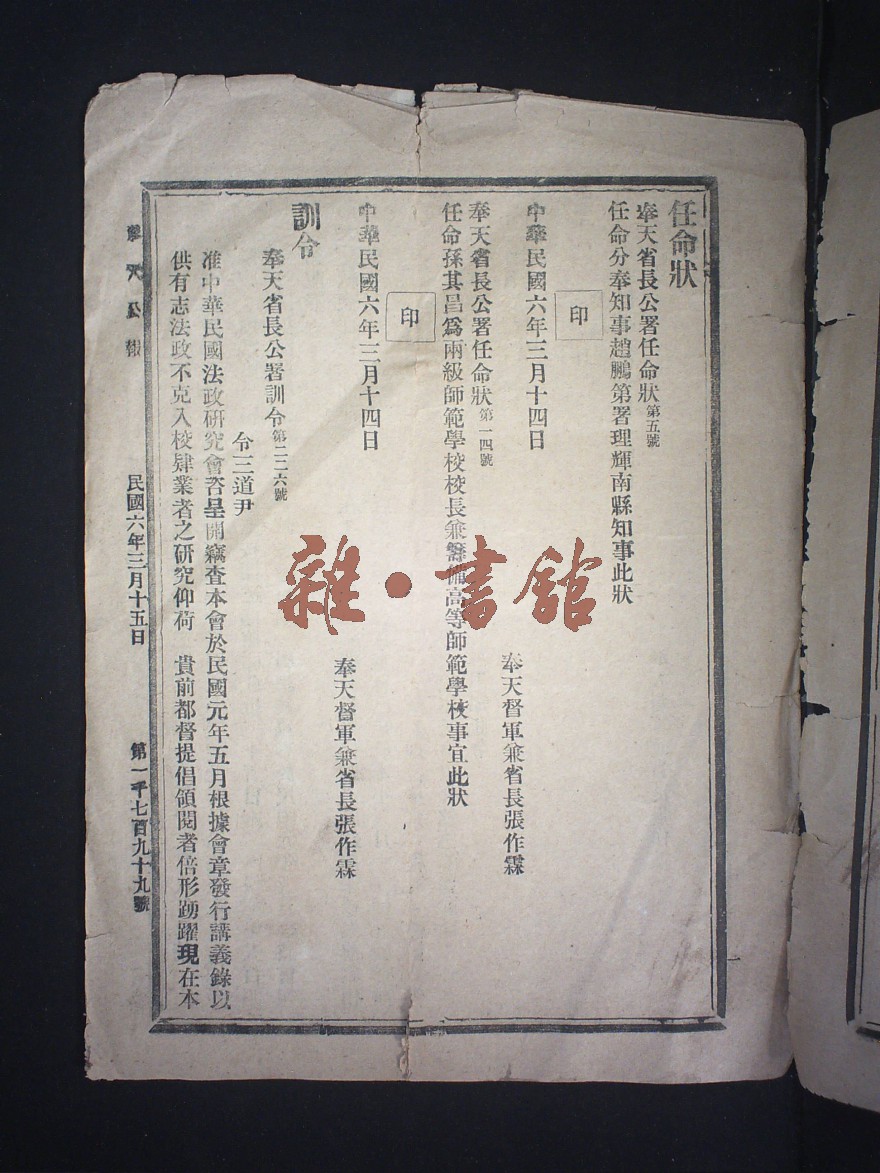 任命狀
奉天省長公署任命狀第五號
任命分奉知事趙鵬第署理輝南縣知事此狀
印
中華民國六年三月十四日
奉天督軍兼省長張作霖
奉天省長公署任命狀第一四號
任命孫其昌爲兩級師範學校校長兼籌備高等師範學校事宜此狀
印
中華民國六年三月十四日
奉天督軍兼省長張作霖
訓令
奉天省長公署訓令第二二六號
令三道尹
准中華民國法政研究會咨呈開竊查本會於民國元年五月根據會章發行講義錄以
供有志法政不克入校肄業者之研究仰荷 貴前都督提倡領閱者倍形踴躍現在本
奉天公報
民國六年三月十五日
第一千七百九十九號
雜·書館